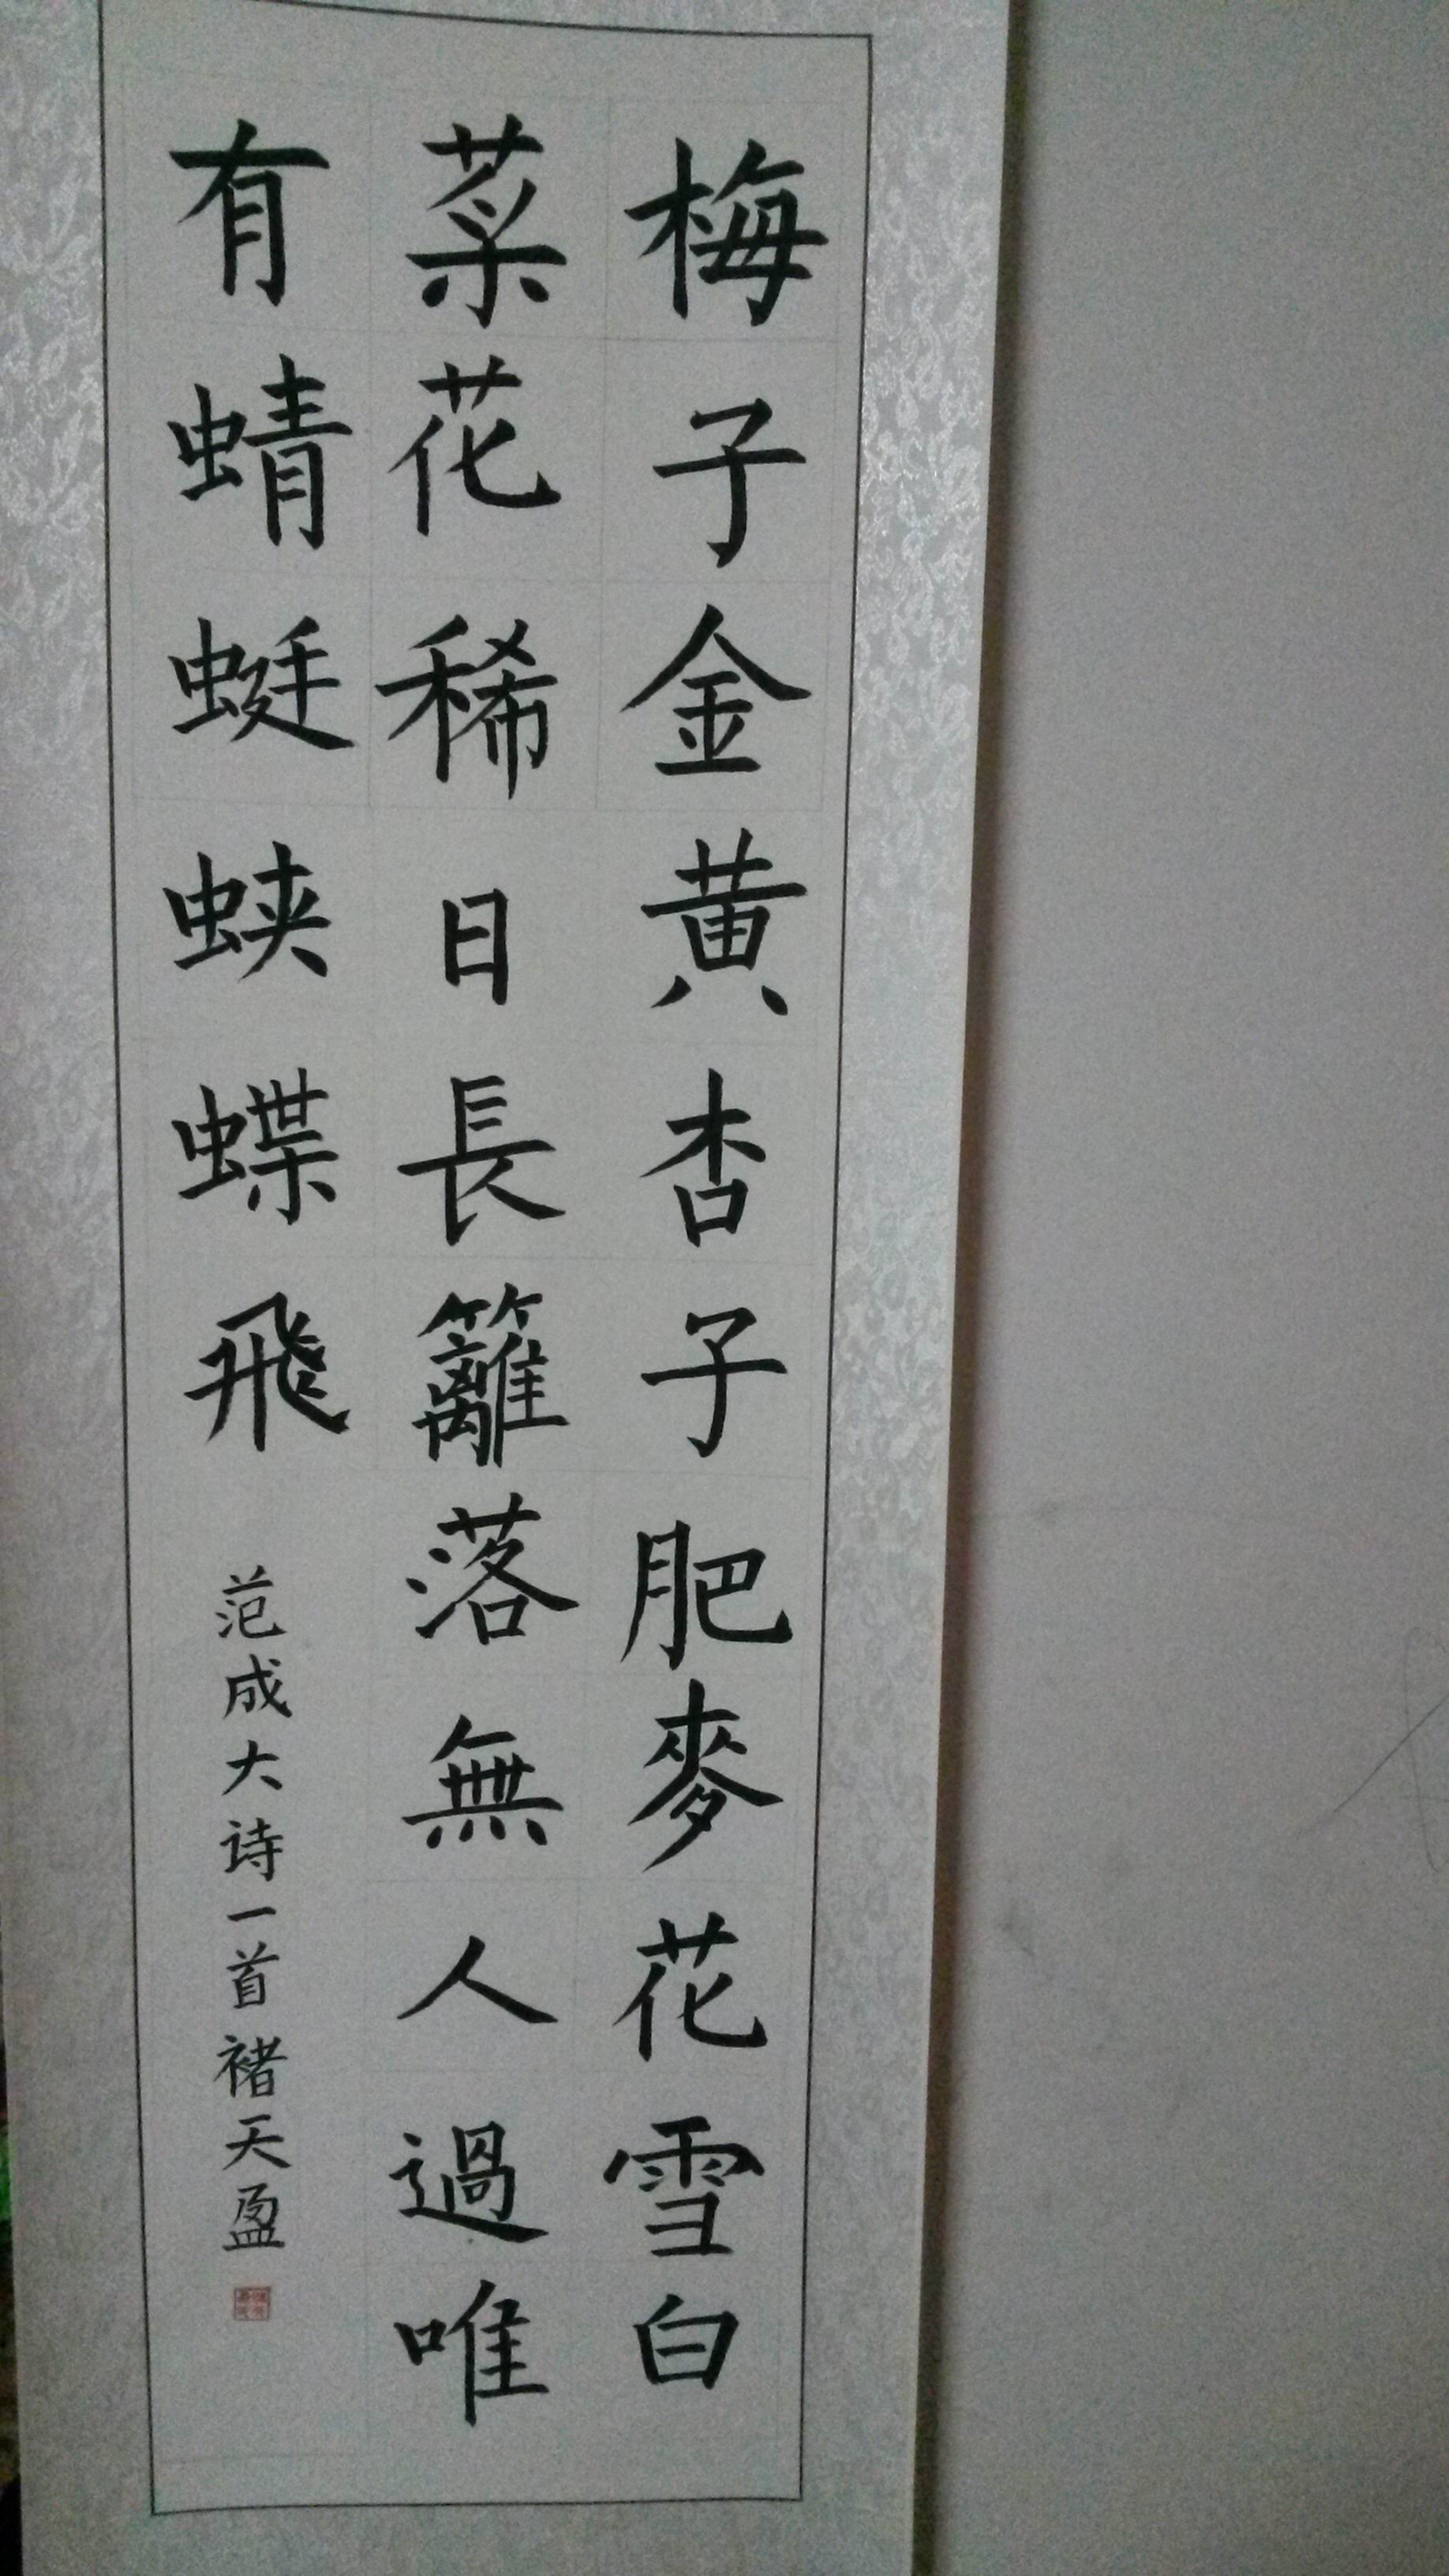 梅子金黄杏子肥麥花雪白
菜花稀日長籬落無人過唯
有蜻蜓蛱蝶飛
范成大诗一首褚天盈